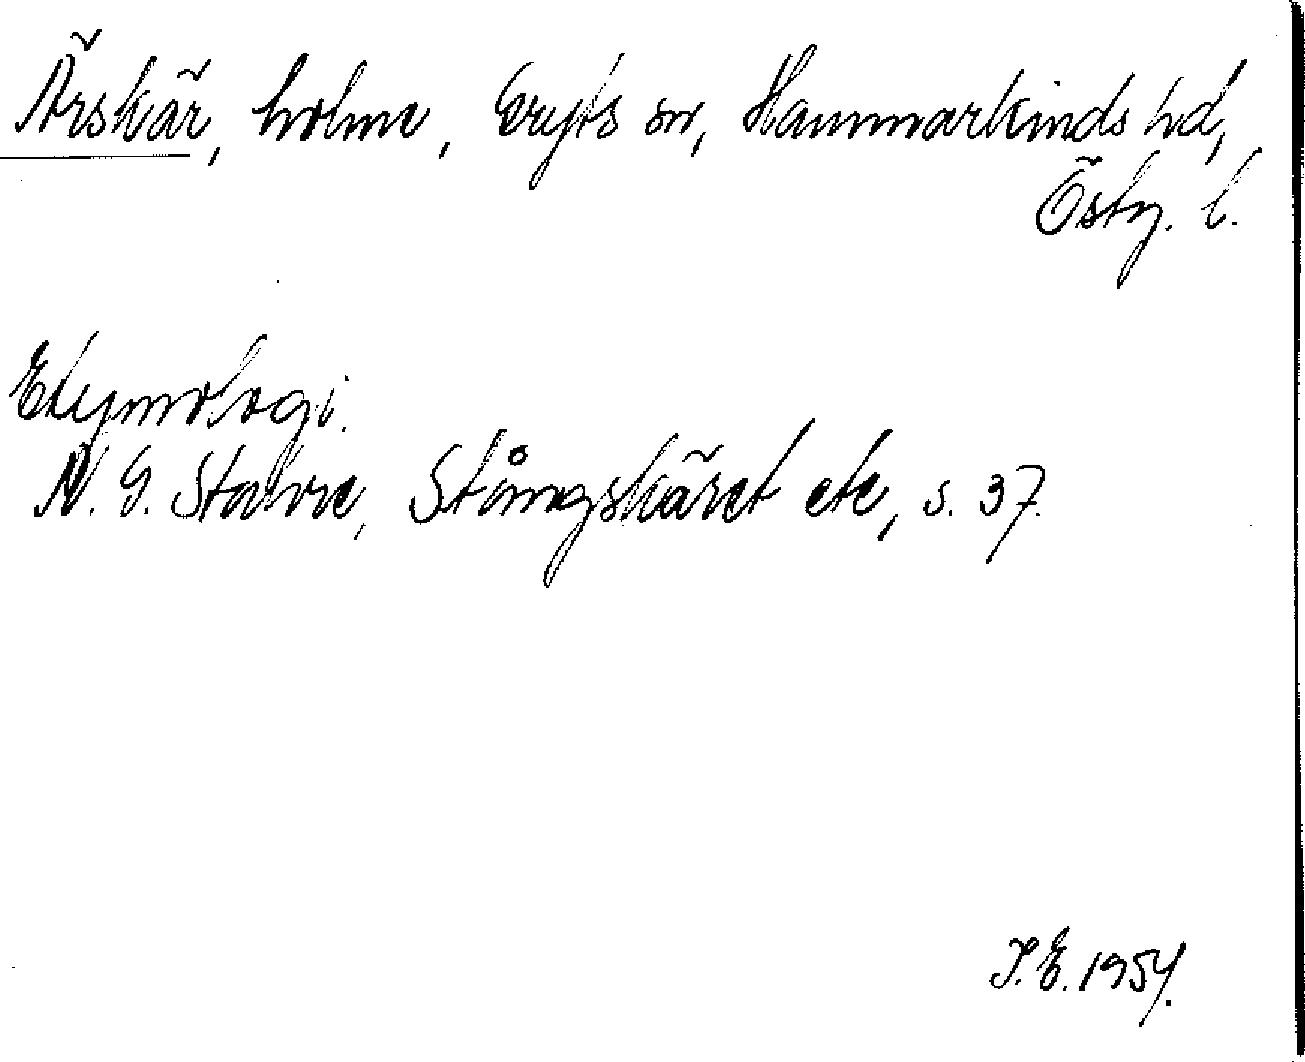 Ärskär, holme, Gryts sn, Hammarkinds hd,
Östg. l.
Etymologi.
N. G. Stahre, Stångskäret etc, s. 37.
I.E. 1954.